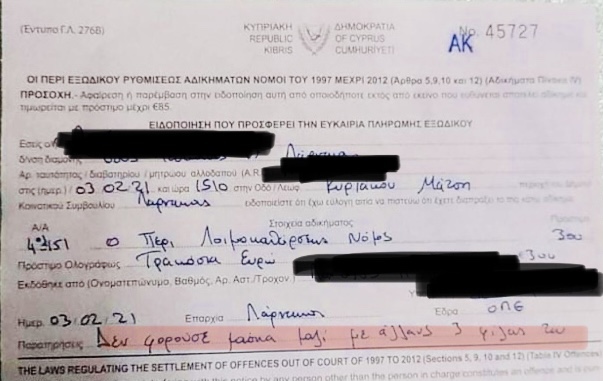 (Έντυπο Γ.Λ. 276Β)
ΚΥΠΡΙΑΚΗ ΔΗΜΟΚΡΑΤΙΑ
REPUBLIC OF CYPRUS
KIBRIS CUMHURIYETI
No. 45727
ΑΚ
ΟΙ ΠΕΡΙ ΕΞΩΔΙΚΟΥ ΡΥΘΜΙΣΕΩΣ ΑΔΙΚΗΜΑΤΩΝ ΝΟΜΟΙ ΤΟΥ 1997 ΜΕΧΡΙ 2012 (Άρθρα 5,9,10 και 12) (Αδικήματα Πίνακα IV)
ΠΡΟΣΟΧΗ.- Αφαίρεση ή παρέμβαση στην ειδοποίηση αυτή από οποιοδήποτε εκτός από εκείνο που ευθύνεται αποτελεί αδίκημα και
τιμωρείται με πρόστιμο μέχρι €85.
ΕΙΔΟΠΟΙΗΣΗ ΠΟΥ ΠΡΟΣΦΕΡΕΙ ΤΗΝ ΕΥΚΑΙΡΙΑ ΠΛΗΡΩΜΗΣ ΕΞΩΔΙΚΟΥ
Εσείς
δ/νση διαμονής
Αρ. ταυτότητας / διαβατηρίου / μητρώου αλλοδαπού (A.R.
στις (ημερ.) 03 02 21 και ώρα 1510 στην Οδό / Λεωφ. Κυριάκου Μάτση
Κοινοτικού Συμβουλίου Λάρνακας ειδοποιείστε ότι έχω εύλογη αιτία να πιστεύω ότι έχετε διαπράξει το πιο κάτω αδίκημα.
Α/Α Στοιχεία αδικήματος Πρόστιμο
Ο Περί Λοιμοκαθάρσης Νόμος 300
Πρόστιμο Ολογράφως Τρακόσια Ευρώ €300
Εκδόθηκε από (Ονοματεπώνυμο, Βαθμός, Αρ. Αστ./Τροχον.
Ημερ. 03/02/21 Επαρχία Λάρνακας Έδρα ΟΠΕ
Παρατηρήσεις Δεν φορούσε μάσκα μαζί με άλλους 3 φίλους του
THE LAWS REGULATING THE SETTLEMENT OF OFFENCES OUT OF COURT OF 1997 TO 2012 (Sections 5, 9, 10 and 12) (Table IV Offences)